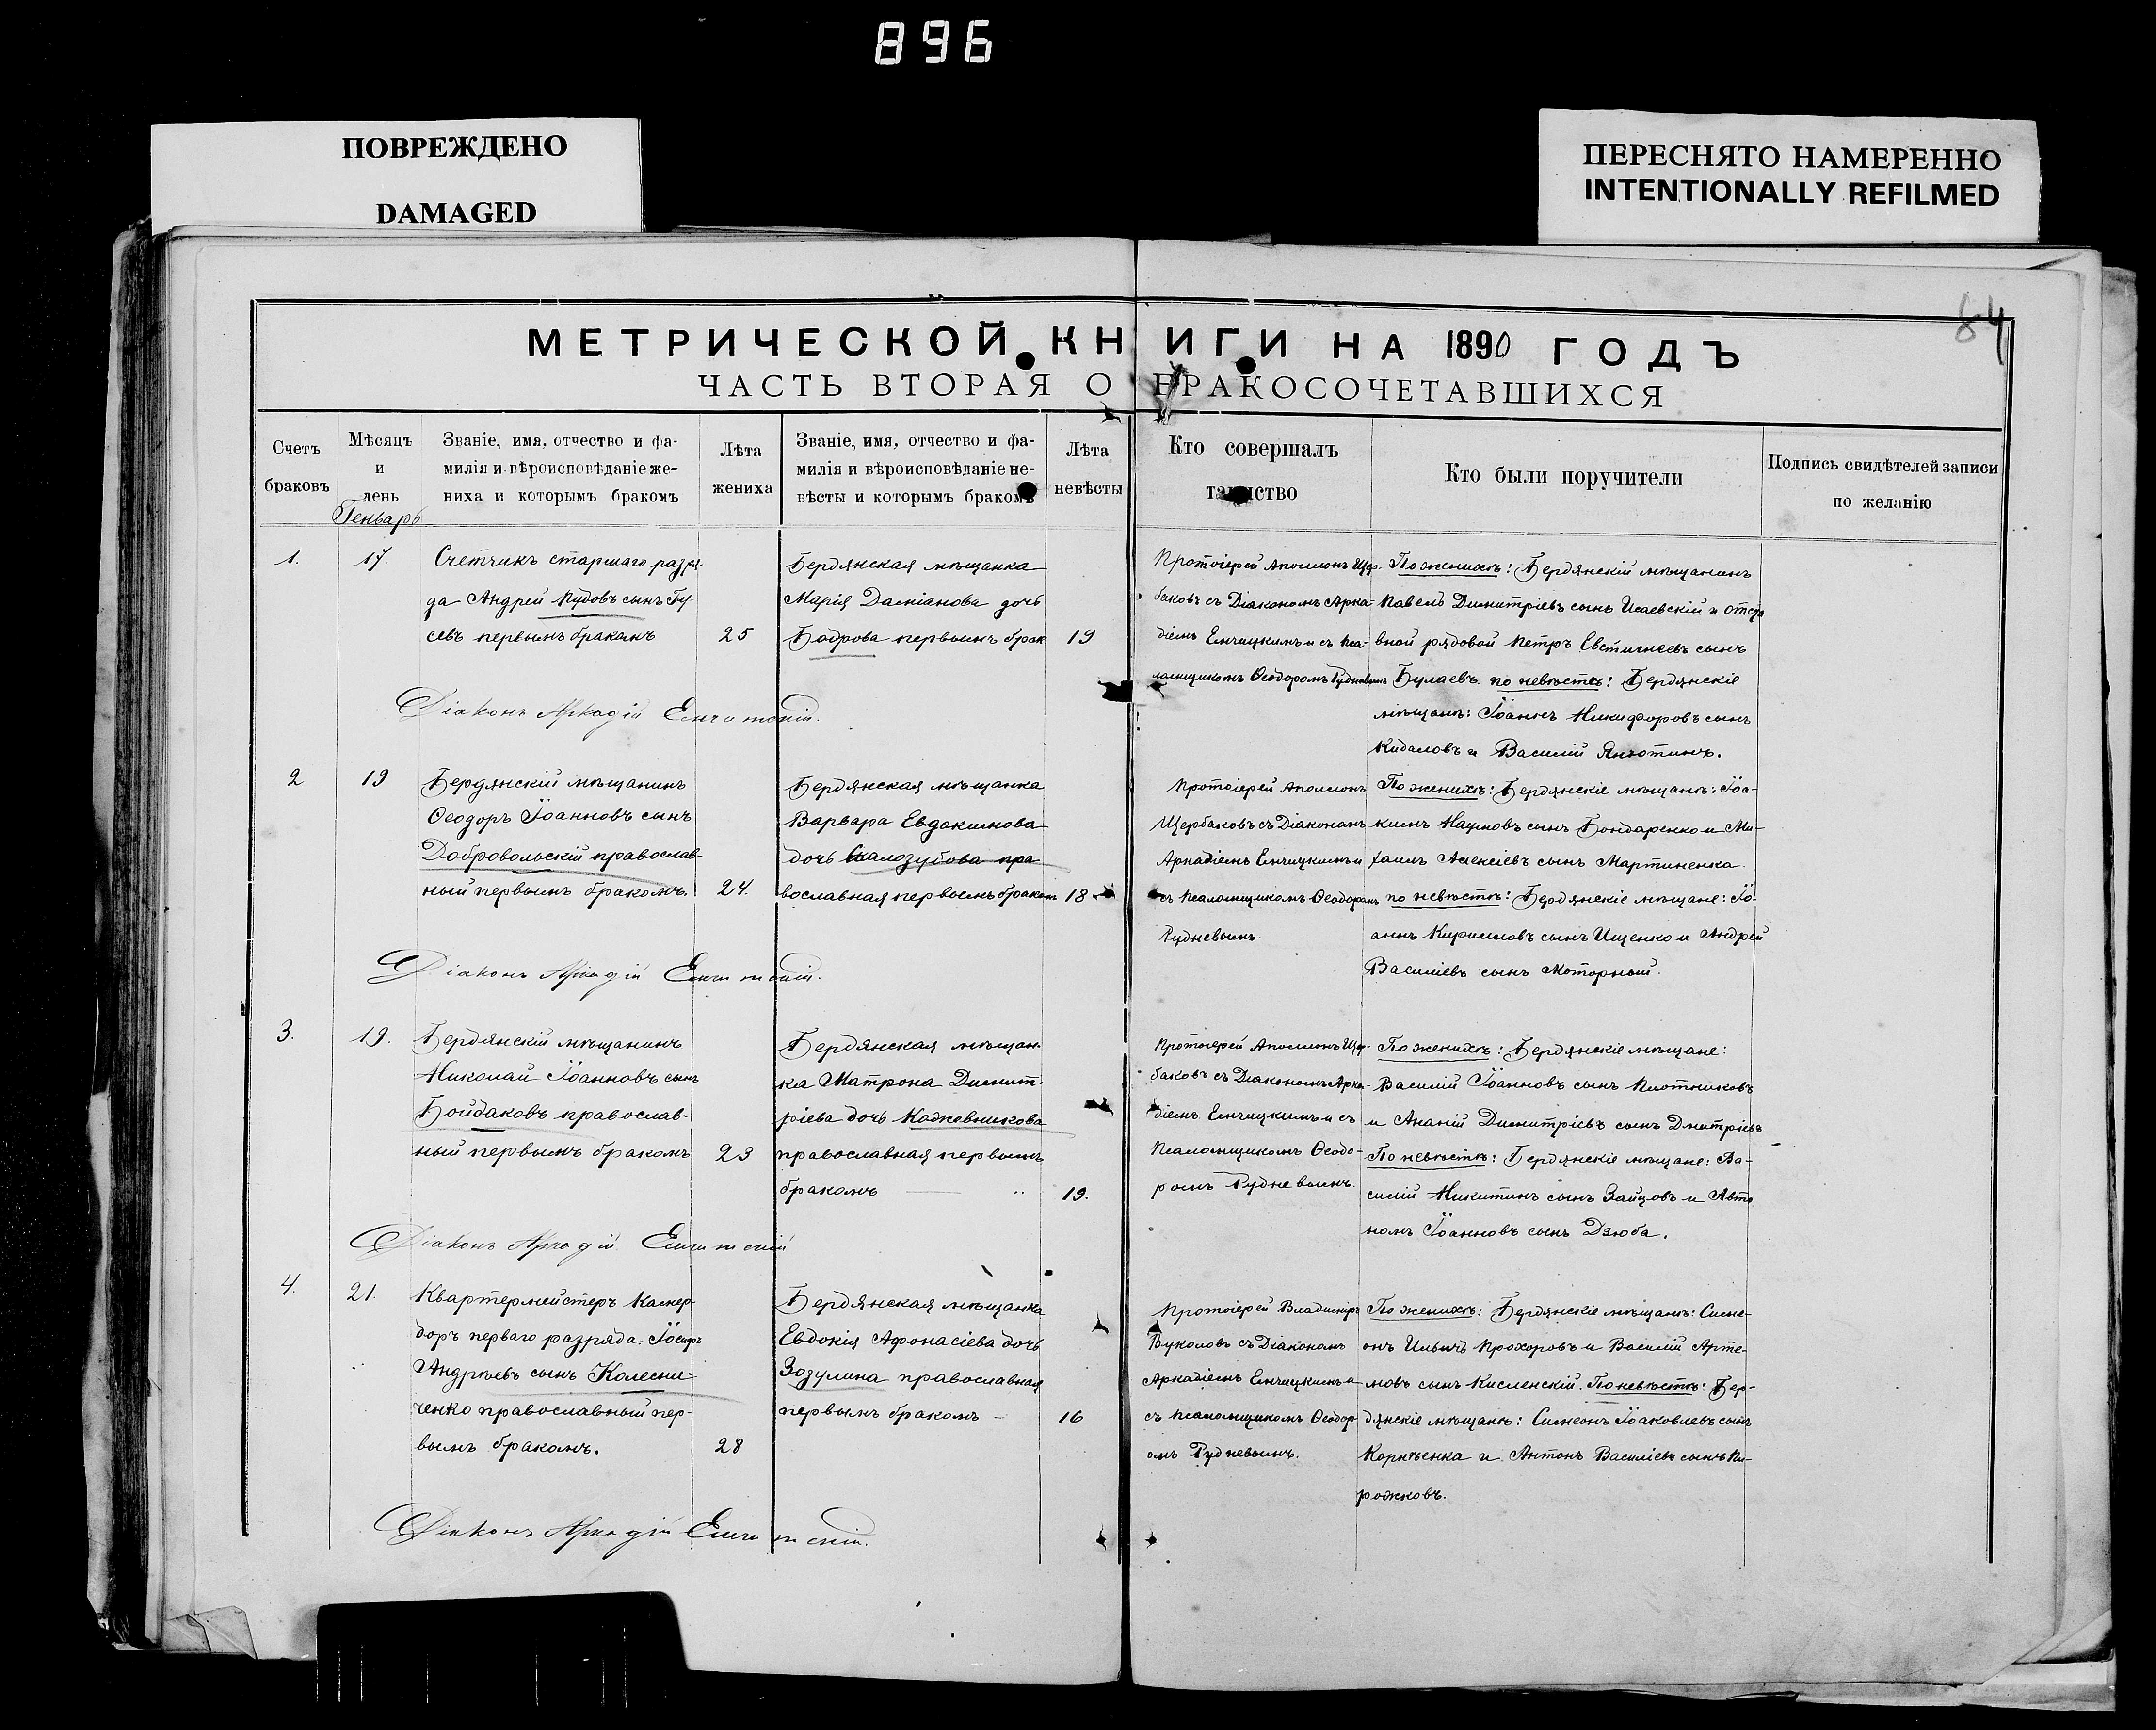 896
ПОВРЕЖДЕНО
DAMAGED
ПЕРЕСНЯТО НАМЕРЕННО
INTENTIONALLY REFILMED
84
МЕТРИЧЕСКОЙ КНИГИ НА 1890 ГОДЪ
ЧАСТЬ ВТОРАЯ О БРАКОСОЧЕТАВШИХСЯ
Счетъ
браковъ
Мѣсяцъ
и
день
Генварь
Званіе, имя, отчество и фа-
милія и вѣроисповѣданіе же-
ниха и которымъ бракомъ
Лѣта
жениха
Званіе, имя, отчество и фа-
милія и вѣроисповѣданіе не-
вѣсты и которымъ бракомъ
Лѣта
невѣсты
Кто совершалъ
таинство
Кто были поручители
Подпись свидѣтелей записи
по желанію
1.
17.
Счетчикъ старшаго разря-
да Андрей Пудовъ сынъ Гу
севъ первымъ бракомъ
25
Бердянская мѣщанка
Марія Даміанова дочь
Бодрова первымъ брак
19
Протоіерей Аполлонъ Щер-
баковъ съ Діакономъ Арка-
діемъ Емчицкимъ и съ Пса-
ломщикомъ Ѳеодоромъ Рудневымъ
По женихѣ: Бердянскій мѣщанинъ
Павелъ Димитріевъ сынъ Исаевскій и отста
вной рядовой Петръ Евстигнеевъ сынъ
Булаевъ. по невѣстѣ: Бердянскіе
мѣщанѣ: Іоаннъ Никифоровъ сынъ
Кидаловъ и Василій
Діаконъ Аркадій Емчитскій.
2
19
Бердянскій мѣщанинъ
Ѳеодоръ Іоанновъ сынъ
Добровольскій православ-
ный первымъ бракомъ.
24.
Бердянская мѣщанка
Варвара Евдокимова
дочь Скалозубова пра
вославная первымъ бракомъ
18
Протоіерей Аполлонъ
Щербаковъ съ Діакономъ
Аркадіемъ Емчицкимъ и
съ Псаломщикомъ Ѳеодоромъ
Рудневымъ.
По женихѣ: Бердянскіе мѣщанѣ: Іоа-
кимъ Наумовъ сынъ Бондаренко и Ми-
хаилъ Алексіевъ сынъ Мартиненка.
по невѣстѣ: Бердянскіе мѣщане: Іо-
аннъ Кирилловъ сынъ Ищенко и Андрей
Василіевъ сынъ Моторный.
Діаконъ Аркадій Емчитскій.
3.
19.
Бердянскій мѣщанинъ
Николай Іоанновъ сынъ
Бойдаковъ православ-
ный первымъ бракомъ
23
Бердянская мѣщан-
ка Матрона Димит-
ріева дочь Кожевникова
православная первымъ
бракомъ
19.
Протоіерей Аполлонъ Щер-
баковъ съ Діакономъ Арка-
діемъ Емчицкимъ и съ
Псаломщикомъ Ѳеодо-
ромъ Рудневымъ.
По женихѣ: Бердянскіе мѣщане:
Василій Іоанновъ сынъ Плотниковъ
и Ананій Димитріевъ сынъ Дмитріевъ
По невѣстѣ: Бердянскіе мѣщане: Ва-
силій Никитинъ сынъ Зайцовъ и Авто
номъ Іоанновъ сынъ Дзюба.
Діаконъ Аркадій Емчитскій
4.
21.
Квартермейстеръ Камер-
доръ перваго разряда. Іосифъ
Андреевъ сынъ Колесни-
ченко православный пер-
вымъ бракомъ.
28
Бердянская мѣщанка
Евдокія Афонасіева дочь
Зозулина православная
первымъ бракомъ —
16
Протоіерей Владиміръ
Вуколовъ съ Діакономъ
Аркадіемъ Емчицкимъ и
съ Псаломщикомъ Ѳеодор-
омъ Рудневымъ.
По женихѣ: Бердянскіе мѣщанѣ: Симе-
онъ Ильичъ Прохоровъ и Василій Арте-
мовъ сынъ Кисленскій. По невѣстѣ: Бер-
дянскіе мѣщанѣ: Симеонъ Іоаковлевъ сынъ
Корнѣенка и Антонъ Василіевъ сынъ Пи-
рожковъ.
Діаконъ Аркадій Емчитскій.